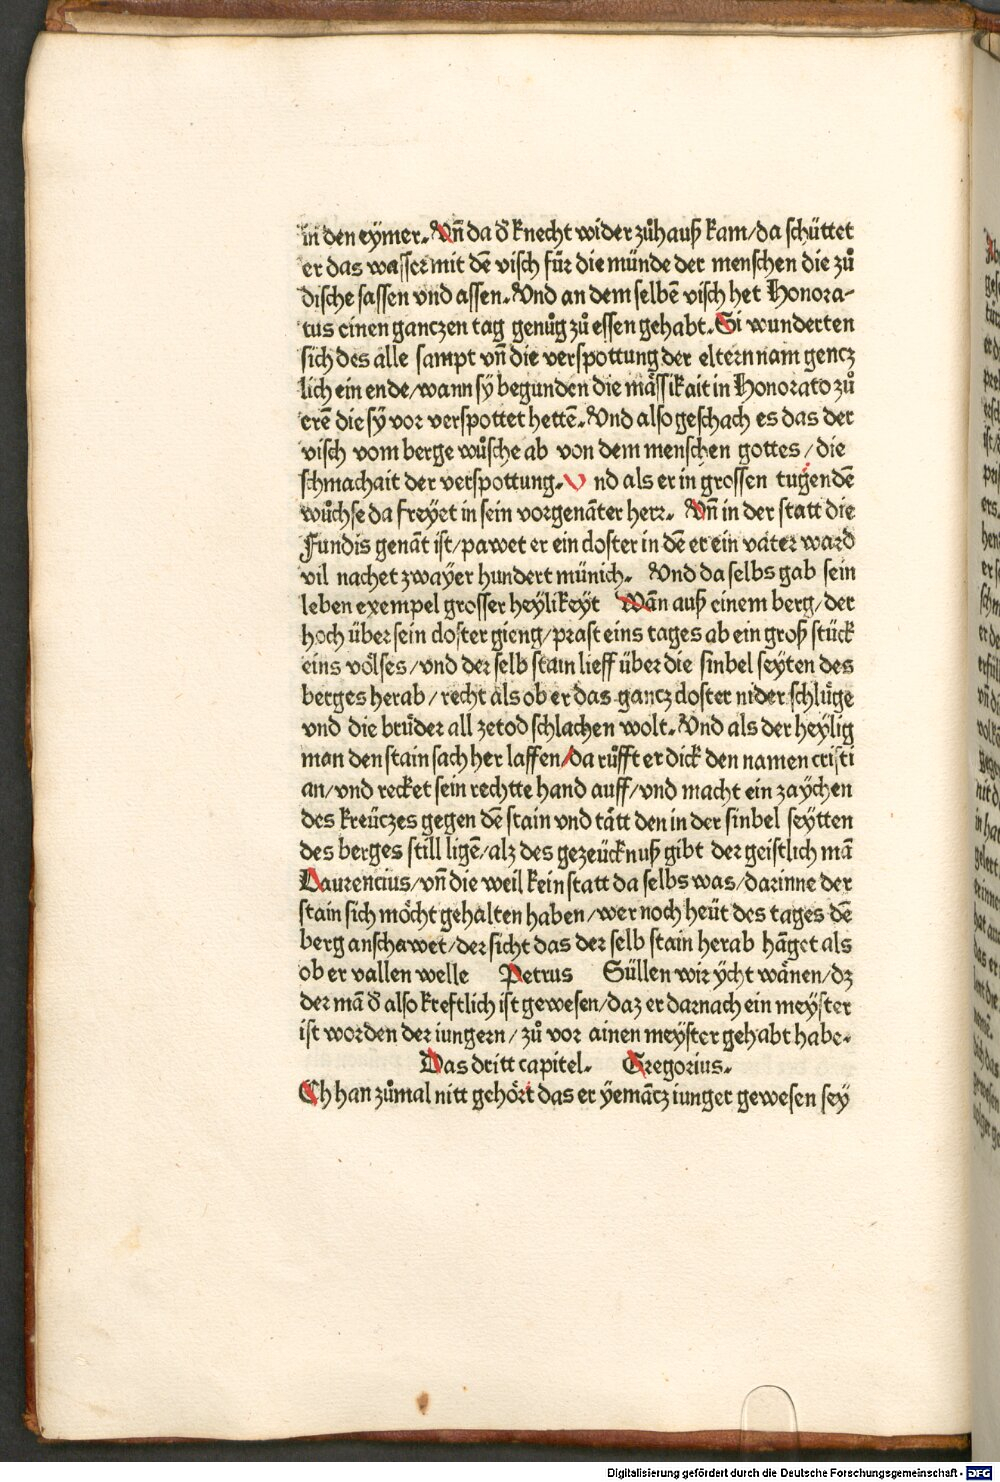 in den eymer. Vn̄ da d̄ knecht wider zůhauß kam/da schüttet
er das wasser mit dē visch für die münde der menschen die zů
dische sassen vnd assen. Vnd an dem selbē visch het Honora-
tus einen ganczen tag genůg zů essen gehabt. Si wunderten
sich des alle sampt vn̄ die verspottung der eltern nam gencz
lich ein ende/wann sÿ begunden die mässikait in Honorato zů
erē die sÿ vor verspottet hettē. Vnd also geschach es das der
visch vom berge wůsche ab von dem menschen gottes/die
schmachait der verspottung. Vnd als er in grossen tugendē
wůchse da freyet in sein vorgenāter herr. Vn̄ in der statt die
Fundis genāt ist/pawet er ein closter in dē er ein väter ward
vil nachet zwayer hundert münich. Vnd da selbs gab sein
leben exempel grosser heylikeyt Wān auß einem berg/der
hoch über sein closter gieng/prast eins tages ab ein groß stück
eins völses/vnd der selb stain lieff über die sinbel seyten des
berges herab/recht als ob er das gancz closter nider schlüge
vnd die brüder all zetod schlachen wolt. Vnd als der heylig
man den stain sach her lassen/da růfft er dick den namen cristi
an/vnd recket sein rechtte hand auff/vnd macht ein zaychen
des kreüczes gegen dē stain vnd tätt den in der sinbel seytten
des berges still ligē/alz des gezeücknuß gibt der geistlich mā
Laurencius/vn̄ die weil kein statt da selbs was/darinne der
stain sich möcht gehalten haben/wer noch heüt des tages dē
berg anschawet/der sicht das der selb stain herab hāget als
ob er vallen welle Petrus Süllen wir ycht wänen/dz
der mā d̄ also kreftlich ist gewesen/daz er darnach ein meyster
ist worden der iungern/zů vor ainen meyster gehabt habe.
Das dritt capitel. Gregorius.
Ich han zůmal nitt gehört das er yemācz iunger gewesen sey
Digitalisierung gefördert durch die Deutsche Forschungsgemeinschaft - DFG